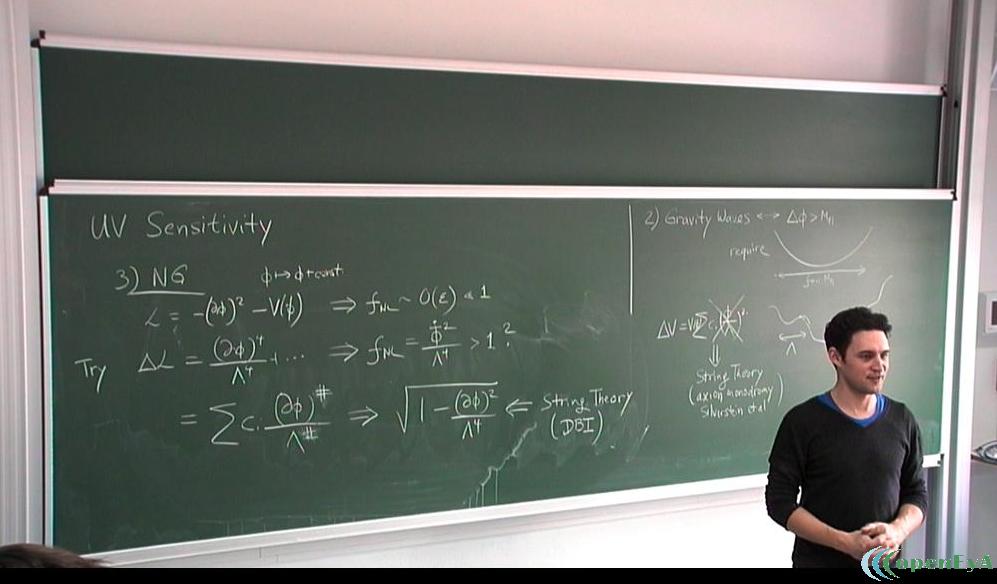 UV Sensitivity
3) NG ϕ↦ϕ+const
ℒ = -(∂ϕ)² - V(ϕ) ⇒ f_NL ~ O(ε) < 1
Try Δℒ = (∂ϕ)⁴/Λ⁴ + ... ⇒ f_NL = ϕ̇²/Λ⁴ > 1 ?
= ∑ cᵢ (∂ϕ)^#/Λ^# ⇒ √(1 - (∂ϕ)²/Λ⁴) ⇐ String Theory
(DBI)
2) Gravity Waves ↔ Δϕ > M_Pl
require
ΔV =
Λ
⇓
String Theory
(axion monodromy
Silverstein et al)
openEyA